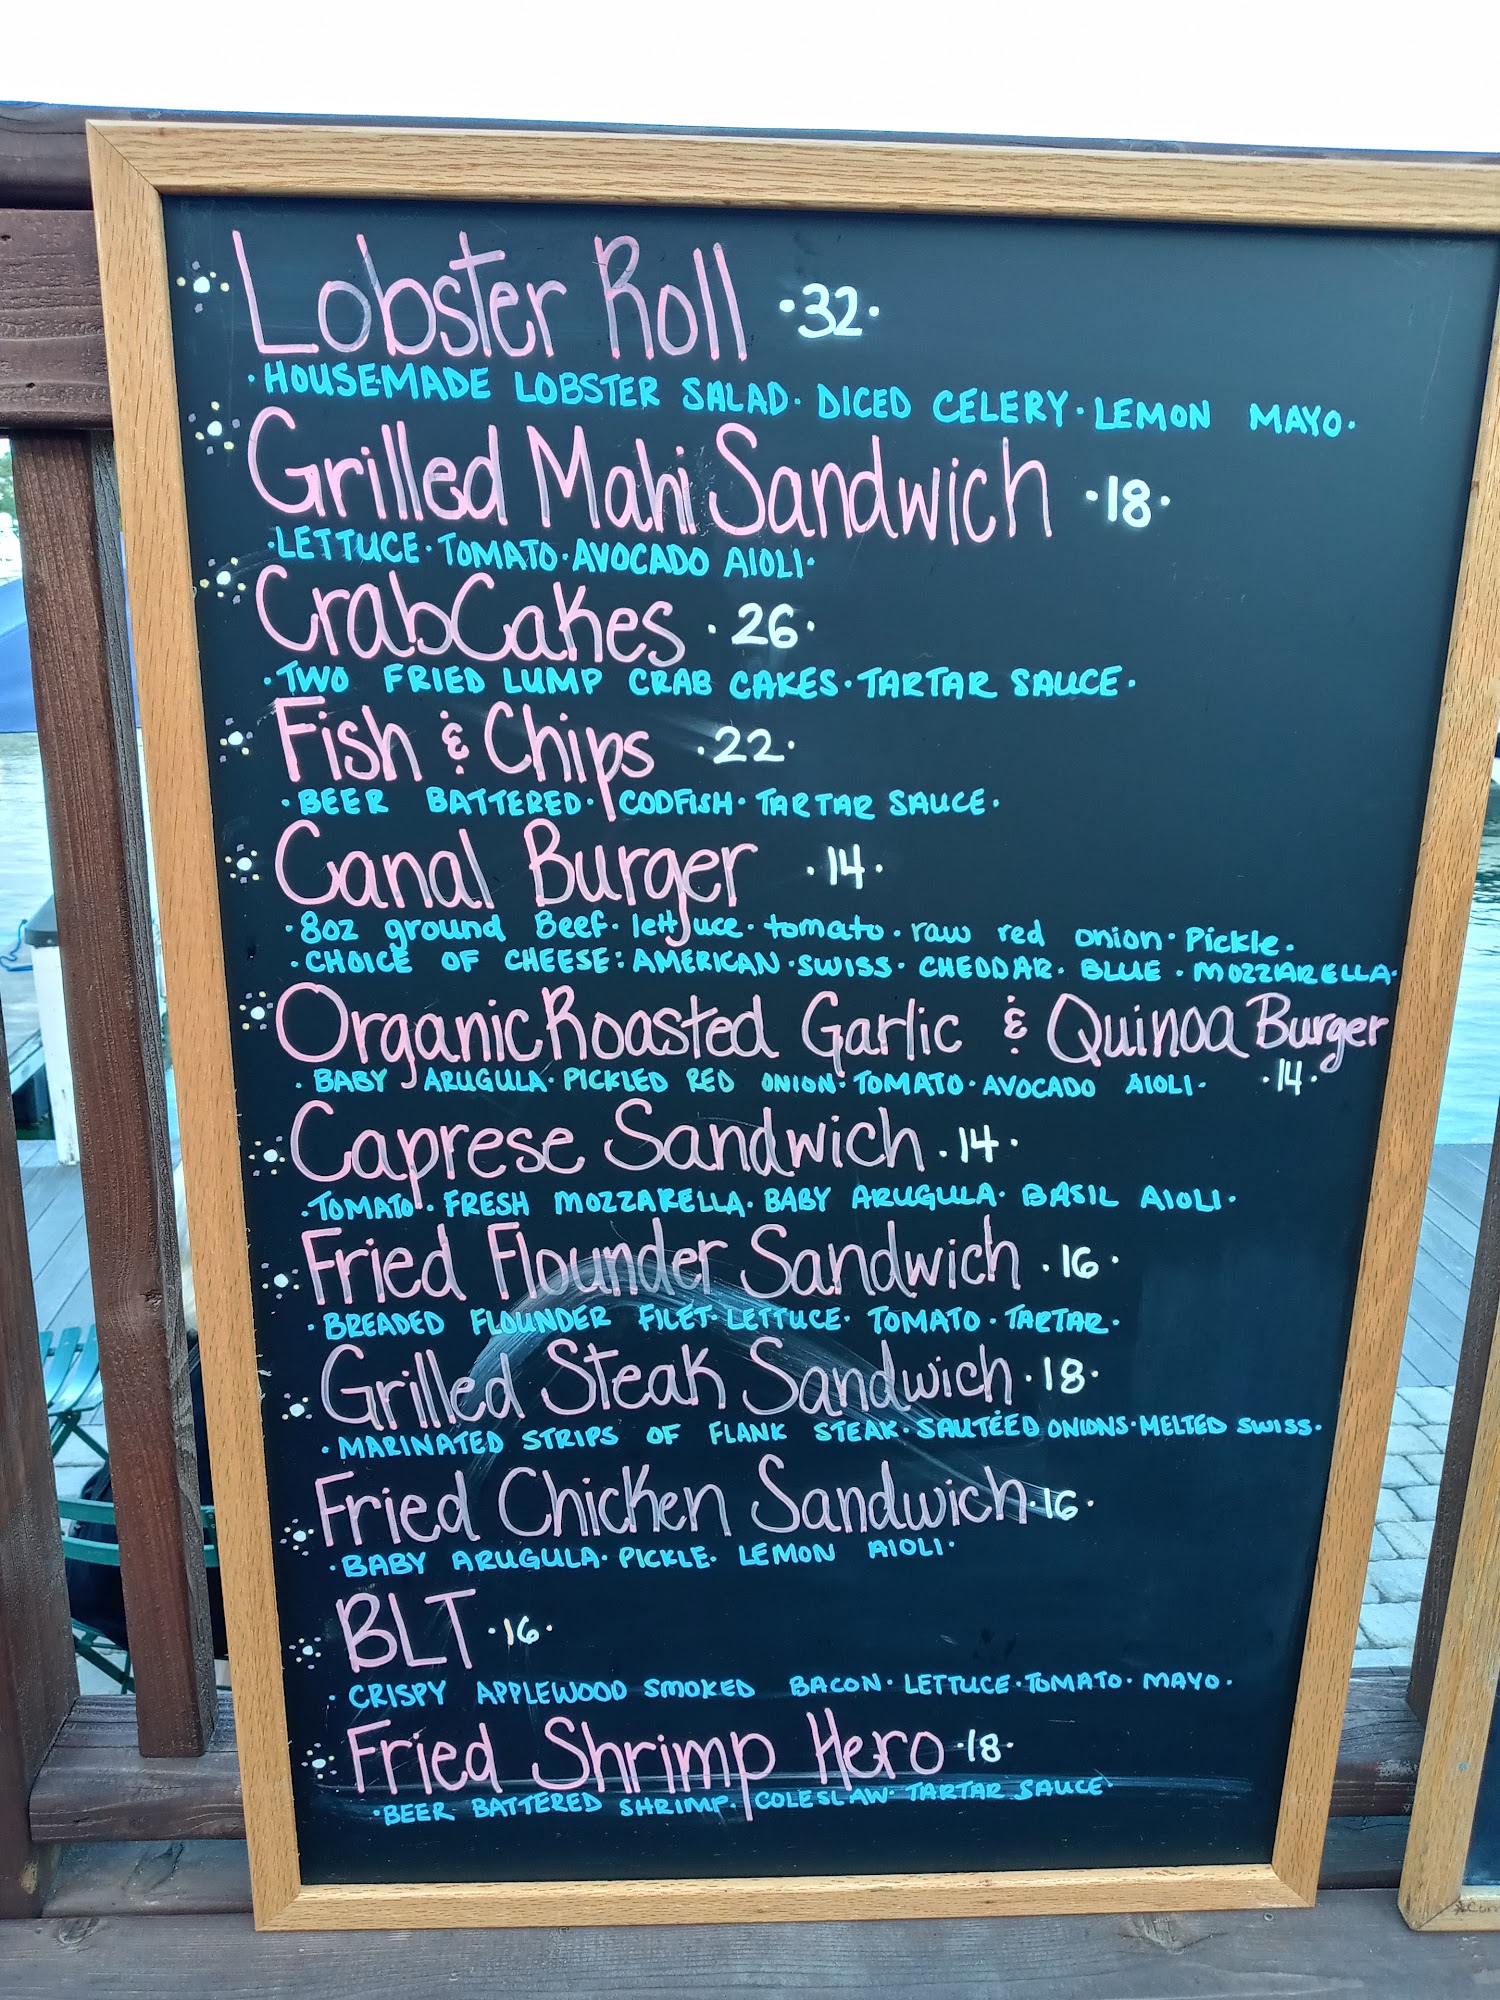 Lobster Roll ·32·
·HOUSEMADE LOBSTER SALAD·DICED CELERY·LEMON MAYO·
Grilled Mahi Sandwich ·18·
·LETTUCE·TOMATO·AVOCADO AIOLI·
Crab Cakes ·26·
·TWO FRIED LUMP CRAB CAKES·TARTAR SAUCE·
Fish & Chips ·22·
·BEER BATTERED·CODFISH·TARTAR SAUCE·
Canal Burger ·14·
·8oz ground Beef·lettuce·tomato·raw red onion·Pickle·
·CHOICE OF CHEESE: AMERICAN·SWISS·CHEDDAR·BLUE·MOZZARELLA·
Organic Roasted Garlic & Quinoa Burger
·BABY ARUGULA·PICKLED RED ONION·TOMATO·AVOCADO AIOLI· ·14·
Caprese Sandwich ·14·
·TOMATO·FRESH MOZZARELLA·BABY ARUGULA·BASIL AIOLI·
Fried Flounder Sandwich ·16·
·BREADED FLOUNDER FILET·LETTUCE·TOMATO·TARTAR·
Grilled Steak Sandwich ·18·
·MARINATED STRIPS OF FLANK STEAK·SAUTÉED ONIONS·MELTED SWISS·
Fried Chicken Sandwich ·16·
·BABY ARUGULA·PICKLE·LEMON AIOLI·
BLT ·16·
·CRISPY APPLEWOOD SMOKED BACON·LETTUCE·TOMATO·MAYO·
Fried Shrimp Hero ·18·
·BEER BATTERED SHRIMP·COLESLAW·TARTAR SAUCE·